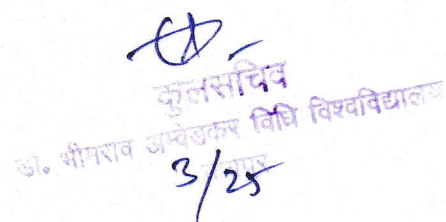 कुलसचिव
डॉ. भीमराव अम्बेडकर विधि विश्वविद्यालय
3/25